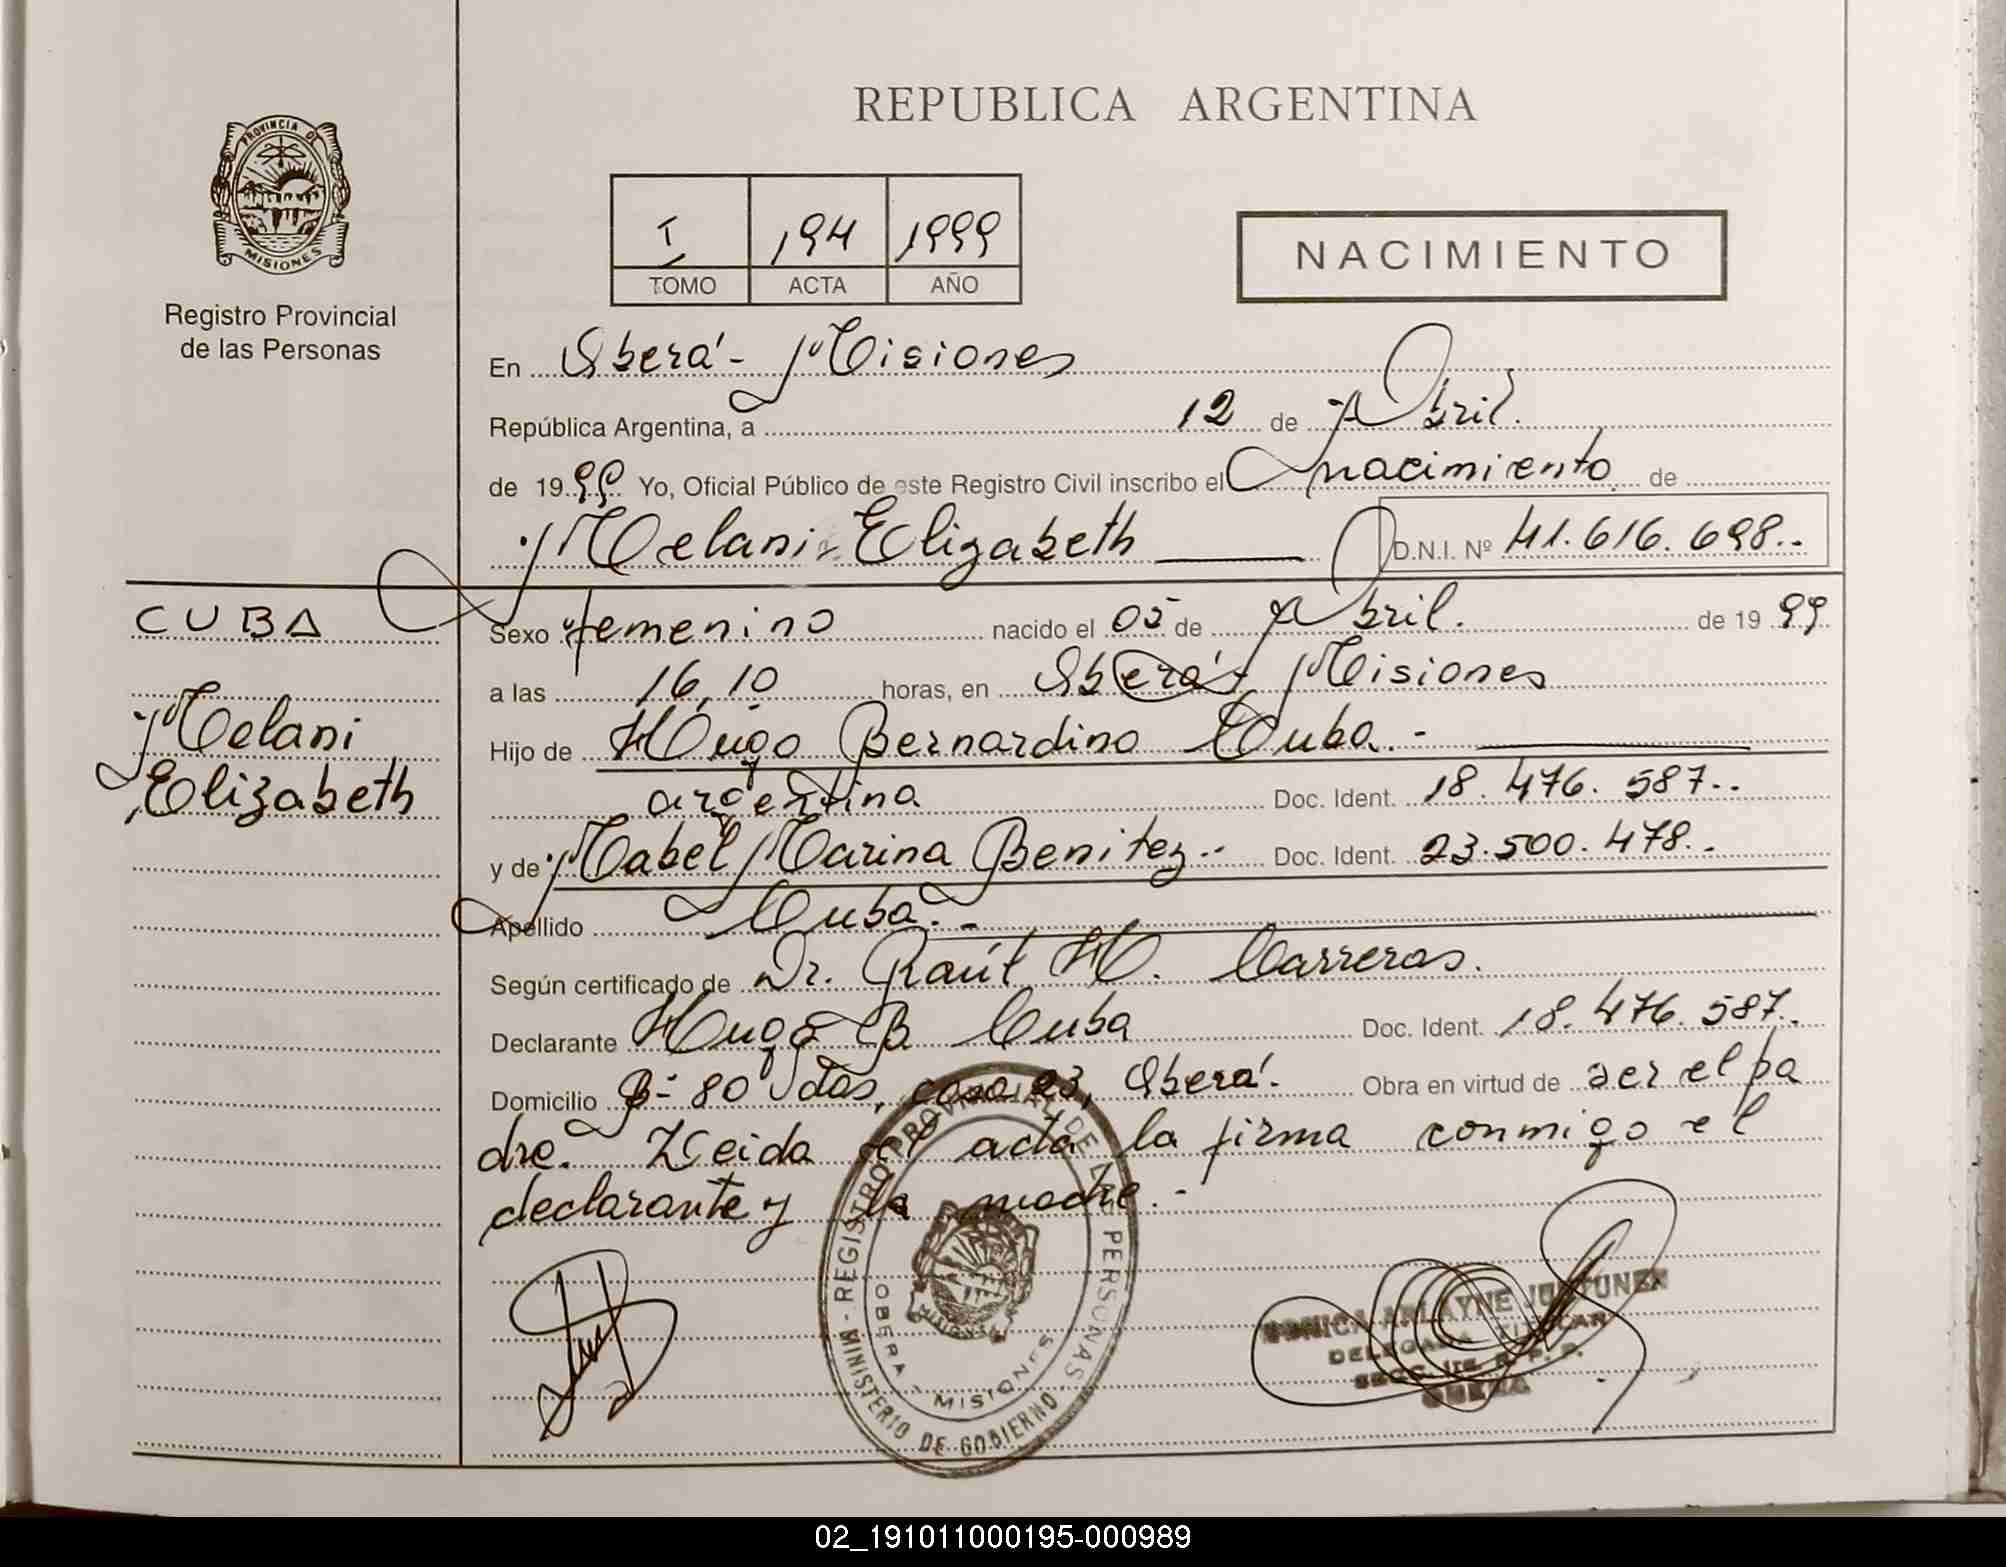 REPUBLICA ARGENTINA
PROVINCIA DE
MISIONES
Registro Provincial
de las Personas
I 194 1999
TOMO ACTA AÑO
NACIMIENTO
En Oberá - Misiones
República Argentina, a 12 de Abril.
de 1999 Yo, Oficial Público de este Registro Civil inscribo el nacimiento de
Melani Elizabeth D.N.I. Nº 41.616.698..
CUBA
Melani
Elizabeth
Sexo femenino nacido el 05 de Abril. de 1999
a las 16,10 horas, en Oberá - Misiones
Hijo de Hugo Bernardino Cuba.-
argentina Doc. Ident. 18.476.587..
y de Mabel Marina Benitez.. Doc. Ident. 23.500.478..
Apellido Cuba.-
Según certificado de Dr. Raúl H. Carreras.
Declarante Hugo B Cuba Doc. Ident. 18.476.587.
Domicilio Bº 80 Vdas, casa 23, Oberá. Obra en virtud de ser el pa
dre. Leida el acta la firma conmigo el
declarante y la madre.-
REGISTRO PROVINCIAL DE LAS PERSONAS
MINISTERIO DE GOBIERNO
OBERA - MISIONES
MISIONES
ARLAYNE
DELEGADA TITULAR
02_191011000195-000989